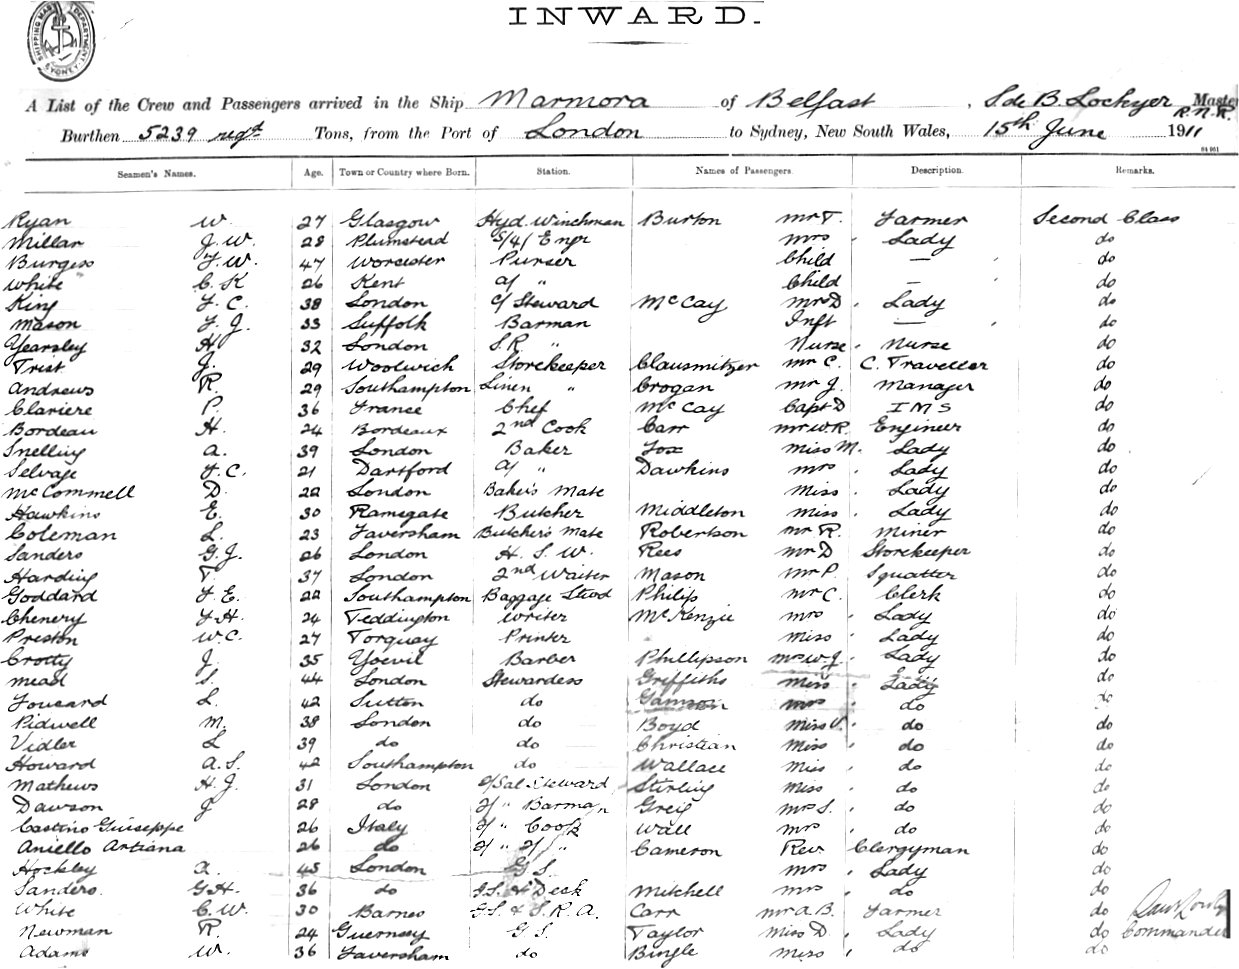 SHIPPING MASTER'S DEPARTMENT SYDNEY
INWARD.
A List of the Crew and Passengers arrived in the Ship Marmora of Belfast, S de B. Lockyer Master R.N.R.
Burthen 5239 regd Tons, from the Port of London to Sydney, New South Wales, 15th June 1911
Seamen's Names. Age. Town or Country where Born. Station. Names of Passengers. Description. Remarks.
Ryan W. 27 Glasgow Hyd. Winchman Burton Mr T. Farmer Second Class
Millar J. W. 28 Plumstead S/4/ Engr Mrs Lady do
Burgess F. W. 47 Worcester Purser Child — do
White C. K 26 Kent a/ " Child — do
King F. C. 38 London c/ Steward McCay Mrs D. Lady do
Mason F. J. 33 Suffolk Barman Inft — do
Yearsley H 32 London S.R. " Nurse Nurse do
Trist J. 29 Woolwich Storekeeper Clausnitzer Mr C. C. Traveller do
Andrews R. 29 Southampton Linen " Crogan Mr J. Manager do
Clariere P. 36 France Chef McCay Capt D I M S do
Bordeau H. 24 Bordeaux 2nd Cook Carr Mr W. R. Engineer do
Snelling A. 39 London Baker Fox Miss M. Lady do
Selvage F. C. 21 Dartford a/ " Dawkins Mrs Lady do
McCommell D. 22 London Baker's Mate Miss Lady do
Hawkins E. 30 Ramsgate Butcher Middleton Miss Lady do
Coleman L. 23 Faversham Butcher's Mate Robertson Mr R. Miner do
Sanders G. J. 26 London H. S. W. Rees Mr D Storekeeper do
Harding T. 37 London 2nd Waiter Mason Mr P. Squatter do
Goddard F. E. 22 Southampton Baggage Stwd Philip Mr C. Clerk do
Chenery F. H. 24 Teddington Writer McKenzie Mrs Lady do
Preston W. C. 27 Torquay Printer Miss Lady do
Crotty J. 35 Yoevil Barber Phillipson Mrs W. J. Lady do
Mead S. 44 London Stewardess Griffiths Miss Lady do
Foucard L. 42 Sutton do Mrs do do
Pidwell M. 38 London do Boyd Miss do do
Vidler L 39 do do Christian Miss do do
Howard A. S. 42 Southampton do Wallace Miss do do
Mathews H. J. 31 London Sal Steward Stirling Miss do do
Dawson J 28 do " Barman Greig Mrs S. do do
Castino Guiseppe 26 Italy " Cook Wall Mrs do do
Aniello Artiana 26 do " " Cameron Rev Clergyman do
Hockley A. 45 London G S. Mrs Lady do
Sanders. G. H. 36 do G.S. & Deck Mitchell Mrs do do
White C. W. 30 Barnes G.S. & S. R. A. Carr Mr A. B. Farmer do
Newman R. 24 Guernsey G S. Taylor Miss D. Lady do Commander
Adams W. 36 Faversham do Bingle Miss do do